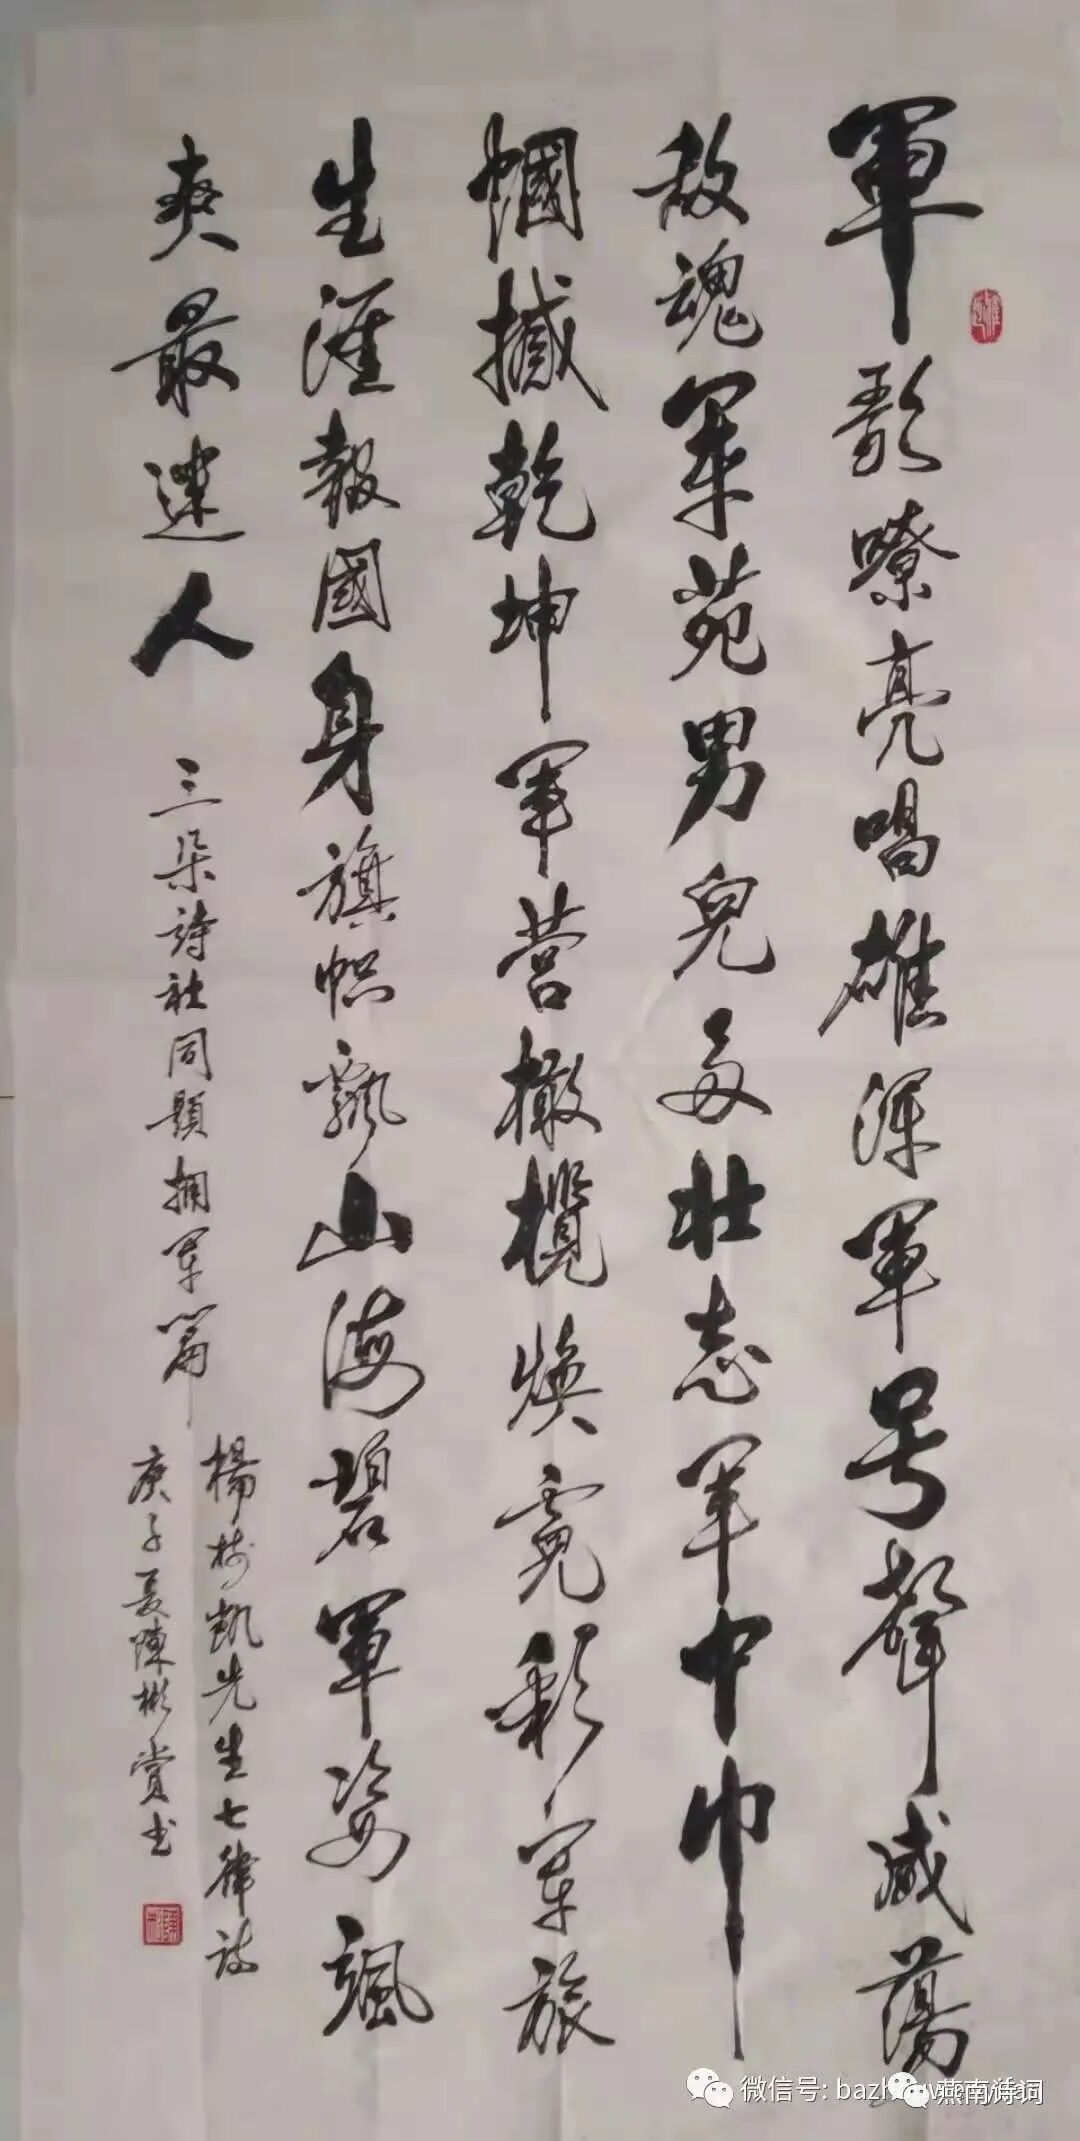 軍歌嘹亮唱雄渾軍号聲威蕩
敌魂軍苑男兒多壮志軍中巾
幗撼乾坤軍营橄欖焕霓彩軍旅
生涯報國身旗帜飘山海碧軍姿颯
爽最迷人
三朵詩社同題拥军篇
楊树凯先生七律诗
庚子夏陳彬賞书
微信号: bazh
燕南诗词